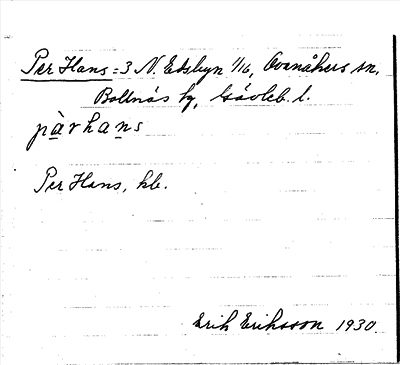 Per Hans = 3 N. Edsbyn 1/16, Ovanåkers sn,
Bollnäs kg, Gävleb. l.
pàrhans
Per Hans, hb.
Erik Eriksson 1930.